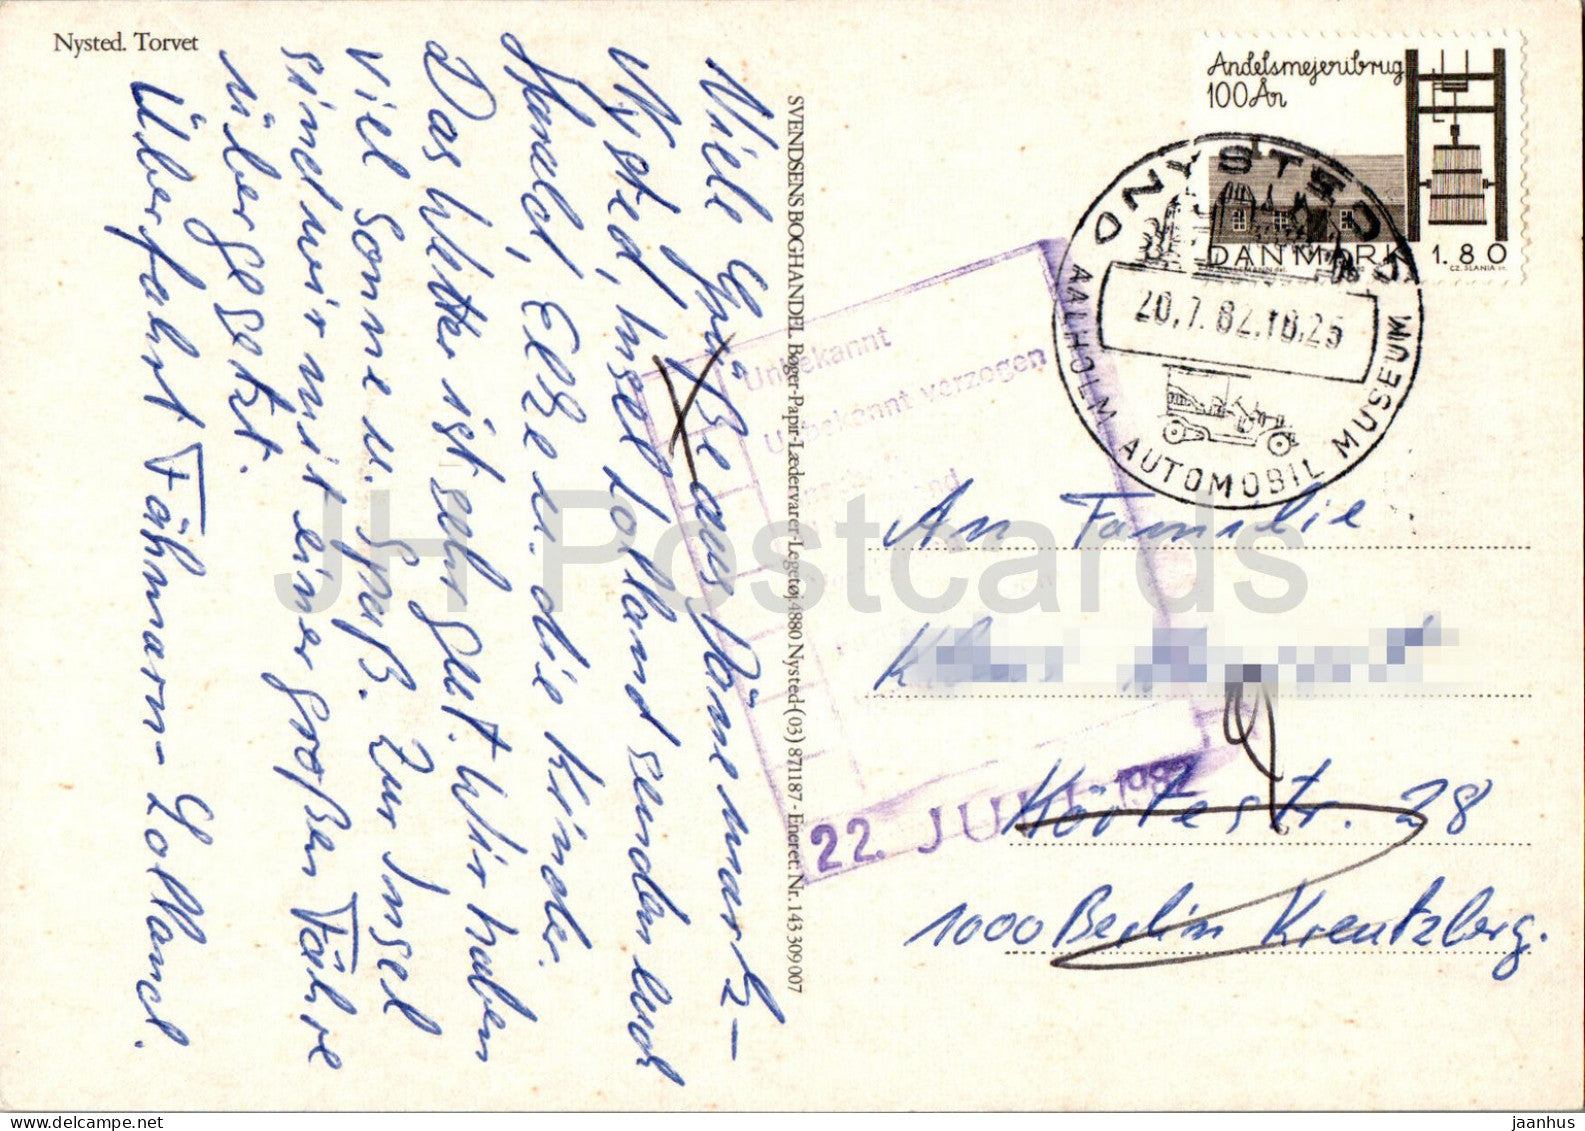 Nysted. Torvet
Viele Grüße aus Dänemark-
Nysted, Insel Lolland senden euch
Harald, Elke u. die Kinder.
Das Wetter ist sehr gut. Wir haben
viel Sonne u. Spaß. Zur Insel
sind wir mit einer großen Fähre
übergesetzt.
Überfahrt Fähmarn - Lolland.
SVENDSENS BOGHANDEL. Bøger-Papir-Lædervarer-Legetøj, 4880 Nysted-(03) 871187 - Eneret. Nr. 143 309 007
Andelsmejeribrug
100 År
DANMARK 1.80
CZ. SLANIA sc.
NYSTED
20.7.82.18.25
AALHOLM AUTOMOBIL MUSEUM
Unbekannt
Unbekannt verzogen
22. JULI 1982
An Familie
Körtestr. 28
1000 Berlin Kreutzberg.
JH Postcards
www.delcampe.net
jaanhus